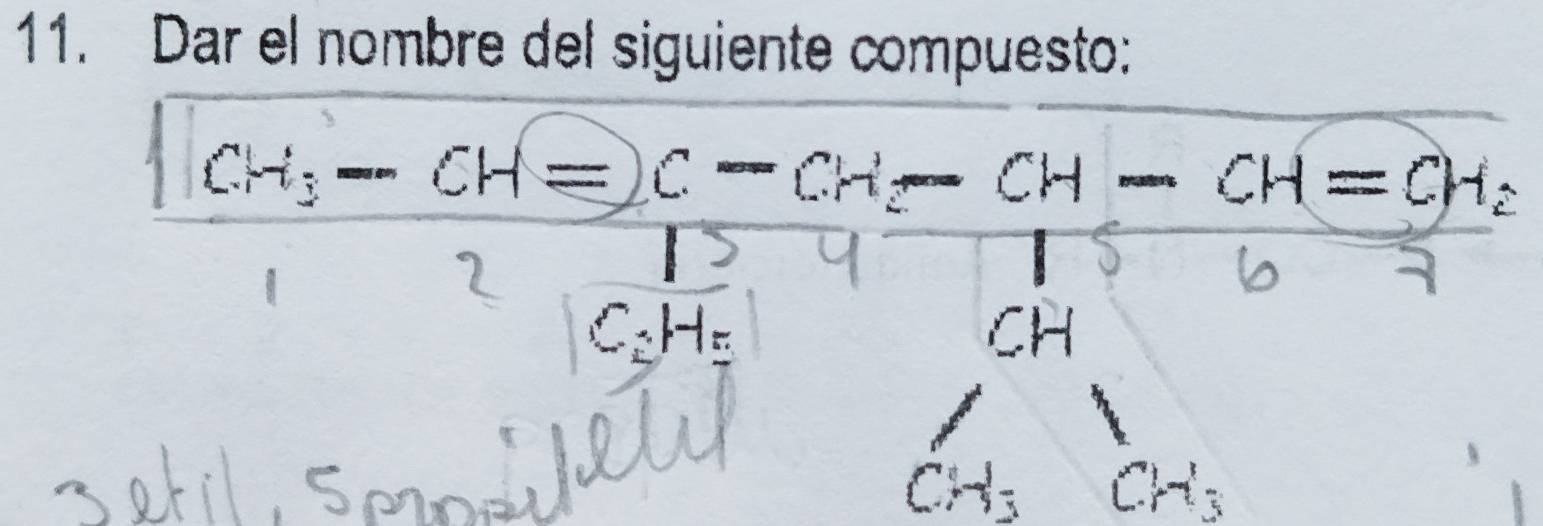 11. Dar el nombre del siguiente compuesto:
CH₃ — CH = C — CH₂ — CH — CH = CH₂
1 2 3 4 5 6 7
C₂H₅ CH
etil
CH₃ CH₃
3 etil, 5 propil